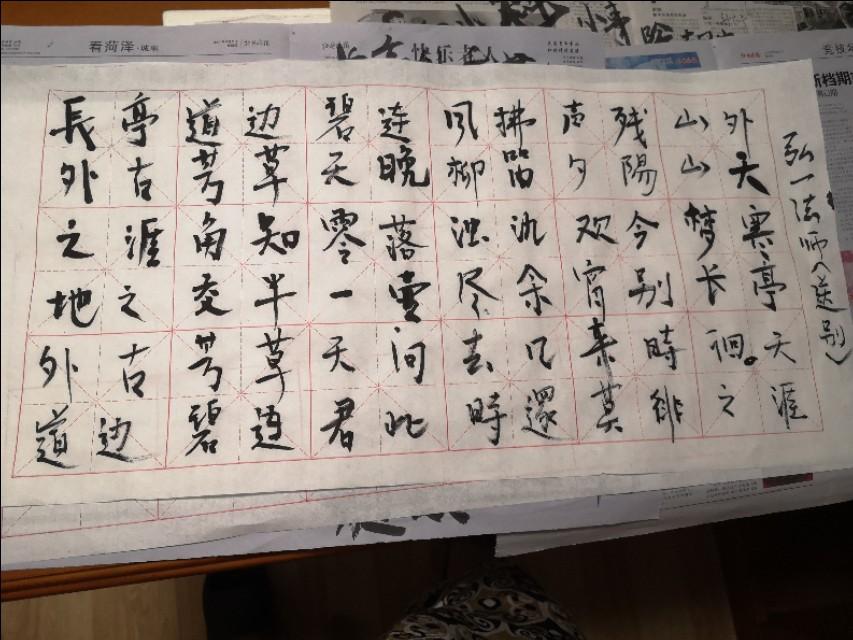 弘一法师《送别》
長亭外古道边芳草碧连天晚风拂柳笛声残夕陽山外山天
之涯地之角知交半零落一壶浊氿尽余欢今宵别梦寒长亭
外古道边芳草碧连天问君此去几時還来時莫徘徊。天之涯
看菏泽